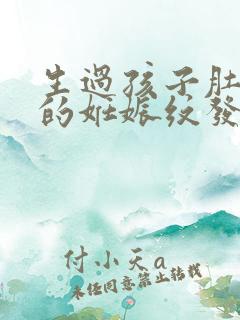 生過孩子肚
的妊娠紋發
付小天a
未经同意禁止转载